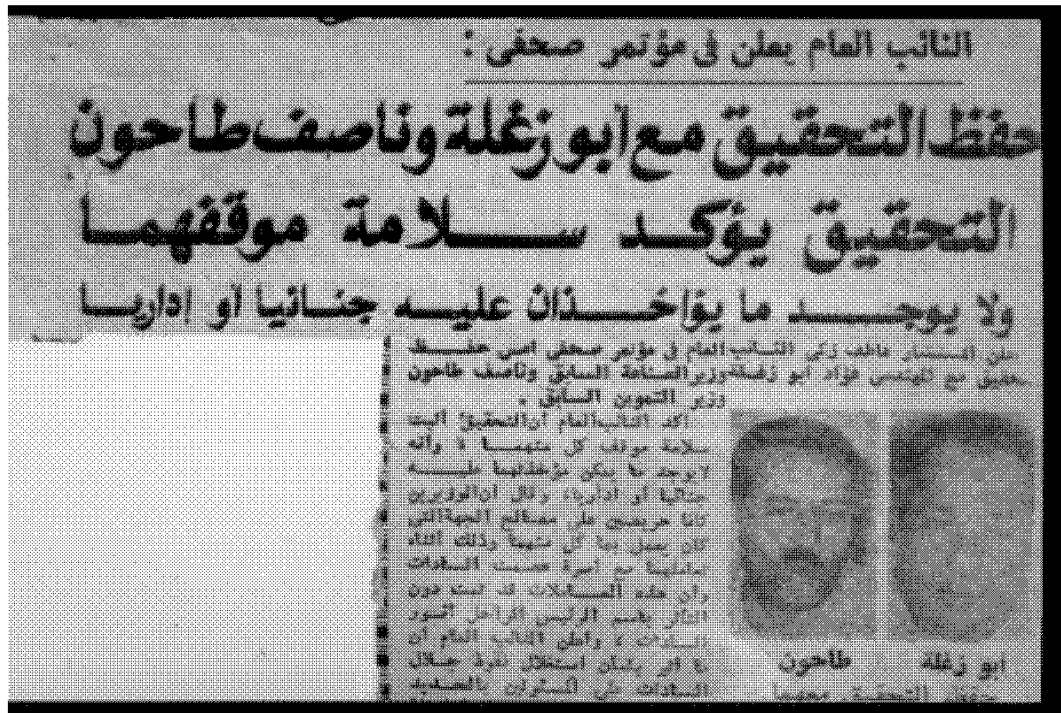 النائب العام يعلن فى مؤتمر صحفى :
حفظ التحقيق مع ابو زغلة وناصف طاحون
التحقيق يؤكد ســـلامة موقفهمـا
ولا يوجـــد ما يؤاخـــذان عليـــه جنـائيا او إداريـا
المستشار عاطف زكى النـائب العام فى مؤتمر صحفى امس حفـــظ
تحقيق مع المهندس فؤاد أبو زغـلة وزير الصناعة السـابق وناصف طاحون
وزير التموين السـابق .
أكد النائب العام أن التحقيق أثبت
سلامة موقف كل منهمـــا وأنه
لا يوجد ما يمكن مؤاخذتهما عليـــه
جنائيا أو اداريا، وقال ان الوزيرين
كانا حريصين على مصالح الجهة التى
كان يعمل بها كل منهما وذلك أثناء
تعاملهما مع أسرة عصمت السادات
وأن هذه المعـــاملات قد تمت دون
التأثر باسم الرئيس الراحل أنـور
الســادات وأعلن النائب العام أن
استغلال نفوذ جـلال
السادات
ابو زغلة
طاحون